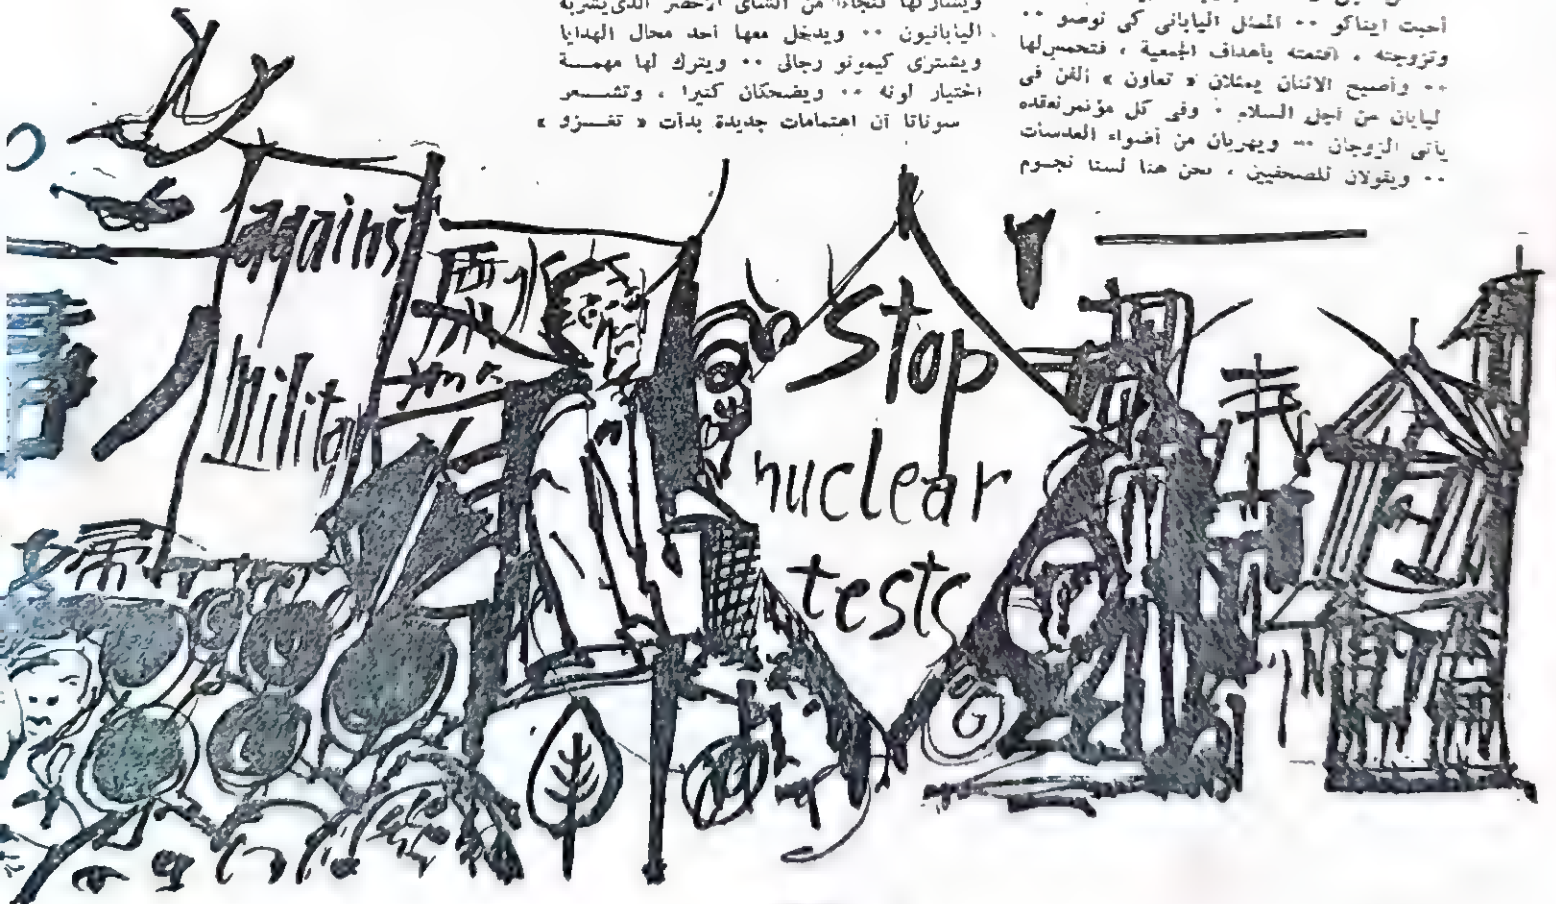 أحبت ايناكو ٠٠ الممثل اليابانى كى نوصو ٠٠
وتزوجته ، أقنعته بأهداف الجمعية ، فتحمس لها
٠٠ وأصبح الاثنان يمثلان « تعاون » الفن فى
ليابان من أجل السلام ٠ وفى كل مؤتمر تعقده
يأتى الزوجان ٠٠ ويهربان من أضواء العدسات
٠٠ ويقولان للصحفيين ، نحن هنا لسنا نجوم
ويشاركها فنجانا من الشاى الأخضر الذى يشربه
اليابانيون ٠٠ ويدخل معها أحد محال الهدايا
ويشترى كيمونو رجالى ٠٠ ويترك لها مهمــة
اختيار لونه ٠٠ ويضحكان كثيرا ، وتشــعر
سوناتا أن اهتمامات جديدة بدأت « تغــزو »
against
milita
Stop
nuclear
tests